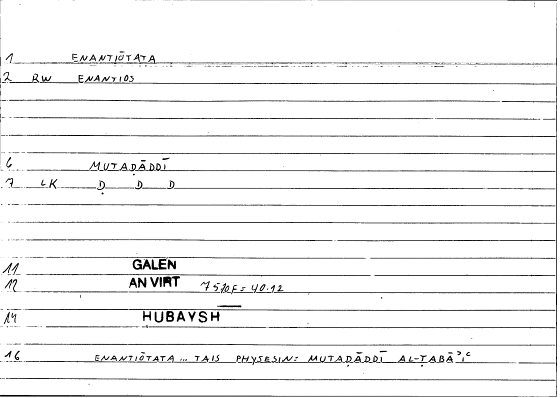 1 ENANTIŌTATA
2 RW ENANTIOS
6 MUTAḌĀDDĪ
7 LK Ḍ D D
11 GALEN
12 AN VIRT 7 5 10F = 40.12
14 HUBAYSH
16 ENANTIŌTATA ... TAIS PHYSESIN: MUTAḌĀDDĪ AL-ṬABĀʾIʿ